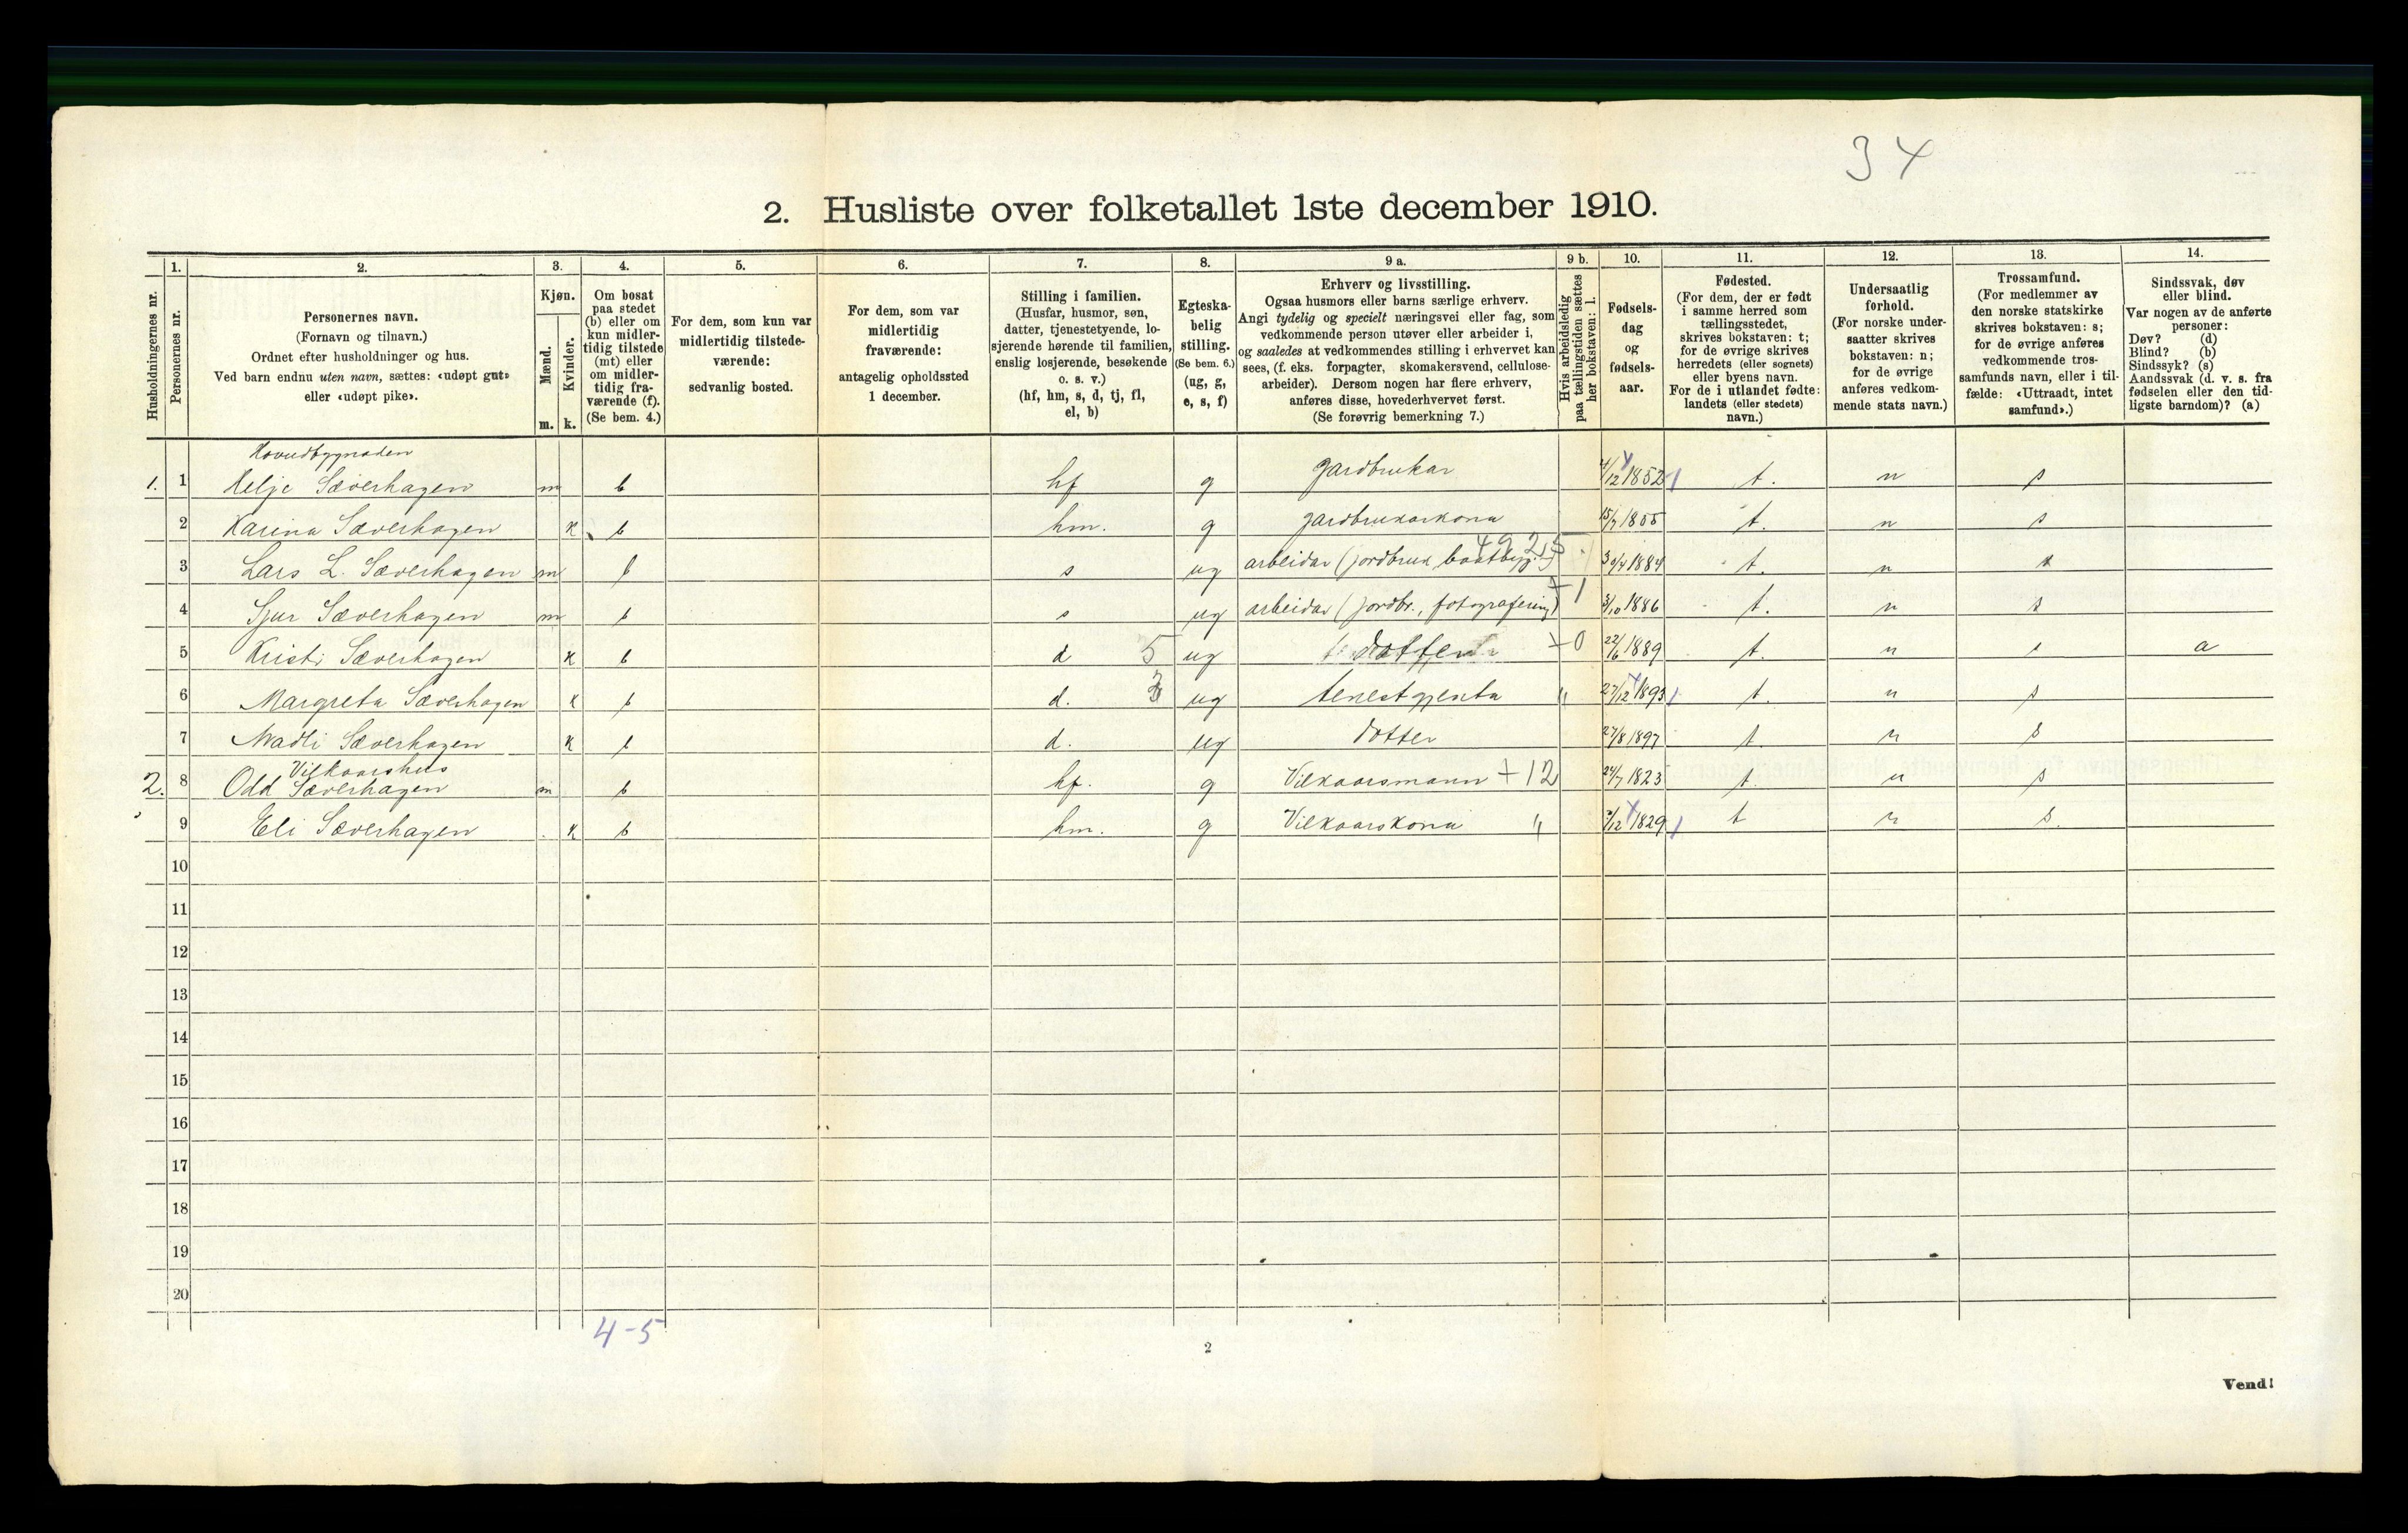 34
2. Husliste over folketallet 1ste december 1910.
Husholdningernes nr.
1. Personernes nr.
2. Personernes navn.
(Fornavn og tilnavn.)
Ordnet efter husholdninger og hus.
Ved barn endnu uten navn, sættes: «udøpt gut»
eller «udøpt pike».
3. Kjøn.
Mænd. Kvinder.
m. k.
4. Om bosat
paa stedet
(b) eller om
kun midler-
tidig tilstede
(mt) eller
om midler-
tidig fra-
værende (f).
(Se bem. 4.)
5. For dem, som kun var
midlertidig tilstede-
værende:
sedvanlig bosted.
6. For dem, som var
midlertidig
fraværende:
antagelig opholdssted
1 december.
7. Stilling i familien.
(Husfar, husmor, søn,
datter, tjenestetyende, lo-
sjerende hørende til familien,
enslig losjerende, besøkende
o. s. v.)
(hf, hm, s, d, tj, fl,
el, b)
8. Egteska-
belig
stilling.
(Se bem. 6.)
(ug, g,
e, s, f)
9 a. Erhverv og livsstilling.
Ogsaa husmors eller barns særlige erhverv.
Angi tydelig og specielt næringsvei eller fag, som
vedkommende person utøver eller arbeider i,
og saaledes at vedkommendes stilling i erhvervet kan
sees, (f. eks. forpagter, skomakersvend, cellulose-
arbeider). Dersom nogen har flere erhverv,
anføres disse, hovederhvervet først.
(Se forøvrig bemerkning 7.)
9 b. Hvis arbeidsledig
paa tællingstiden sættes
her bokstaven: l.
10. Fødsels-
dag
og
fødsels-
aar.
11. Fødested.
(For dem, der er født
i samme herred som
tællingsstedet,
skrives bokstaven: t;
for de øvrige skrives
herredets (eller sognets)
eller byens navn.
For de i utlandet fødte:
landets (eller stedets)
navn.)
12. Undersaatlig
forhold.
(For norske under-
saatter skrives
bokstaven: n;
for de øvrige
anføres vedkom-
mende stats navn.)
13. Trossamfund.
(For medlemmer av
den norske statskirke
skrives bokstaven: s;
for de øvrige anføres
vedkommende tros-
samfunds navn, eller i til-
fælde: «Uttraadt, intet
samfund».)
14. Sindssvak, døv
eller blind.
Var nogen av de anførte
personer:
Døv? (d)
Blind? (b)
Sindssyk? (s)
Aandssvak (d. v. s. fra
fødselen eller den tid-
ligste barndom)? (a)
Hovudbygnaden
1. 1 Helje Sæverhagen m b hf g gardbrukar 4/12 1852 t. n s
2 Karina Sæverhagen k b hm. g gardbrukarkona 15/7 1855 t. n s
4925
3 Lars L. Sæverhagen m b s ug arbeidar (jordbruk, baatbygg.) 30/4 1884 t. n s
+1
4 Sjur Sæverhagen m b s ug arbeidar (jordbr., fotografering) 3/10 1886 t. n s
5 Kristi Sæverhagen k b d 5 ug dotter +0 22/6 1889 t. n s a
6 Margreta Sæverhagen k b d. 3 ug tenestgjenta " 27/12 1893 t. n s
7 Madli Sæverhagen k b d. ug dotter 27/8 1897 t. n s
Vilkaarshus
2. 8 Odd Sæverhagen m b hf. g Vilkaarsmann +12 24/7 1823 t. n s
9 Eli Sæverhagen k b hm. g Vilkaarskona " /12 1829 t n s.
10
11
12
13
14
15
16
17
18
19
20
4-5
2
Vend!